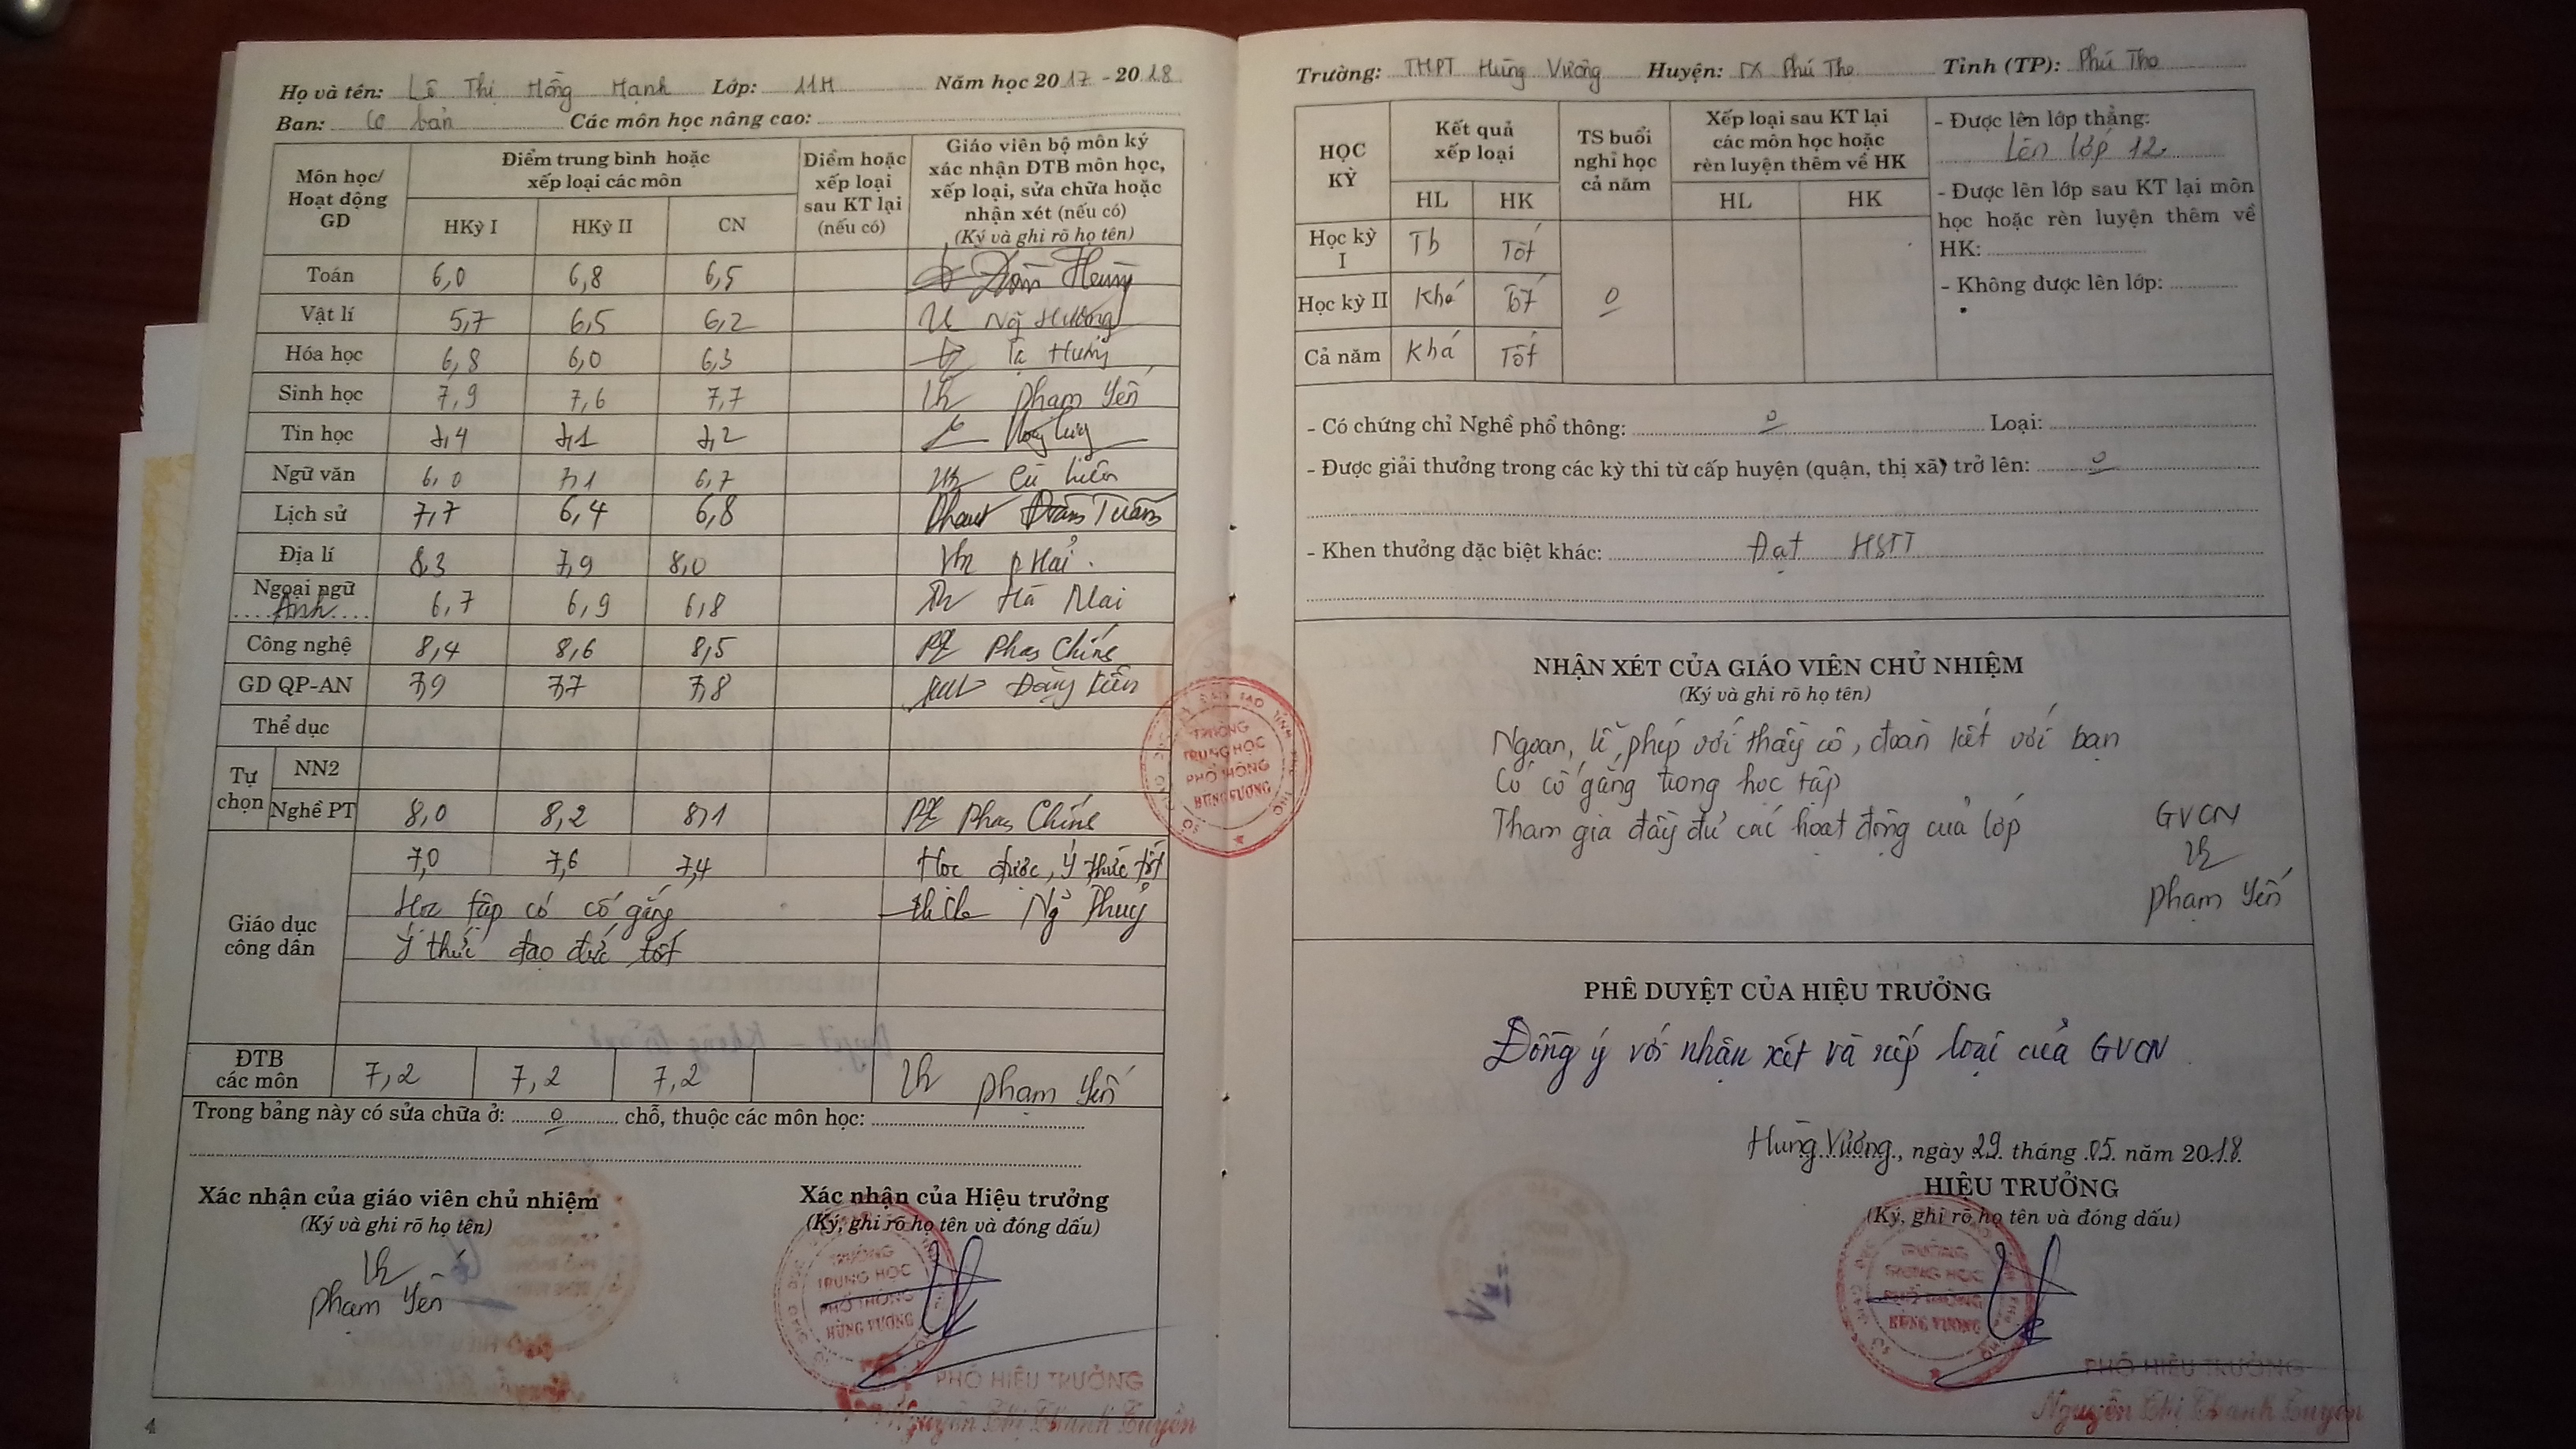 Họ và tên: Lê Thị Hồng Hạnh Lớp: 11H Năm học 2017 - 2018
Ban: Cơ bản Các môn học nâng cao:
Môn học/ Hoạt động GD
Điểm trung bình hoặc xếp loại các môn
HKỳ I HKỳ II CN
Điểm hoặc xếp loại sau KT lại (nếu có)
Giáo viên bộ môn ký xác nhận ĐTB môn học, xếp loại, sửa chữa hoặc nhận xét (nếu có)
(Ký và ghi rõ họ tên)
Toán 6,0 6,8 6,5
Vật lí 5,7 6,5 6,2
Hóa học 6,8 6,0 6,3 Tạ Hưng
Sinh học 7,9 7,6 7,7 Phạm Yến
Tin học 7,4 7,1 7,2
Ngữ văn 6,0 7,1 6,7
Lịch sử 7,7 6,4 6,8
Địa lí 8,3 7,9 8,0
Ngoại ngữ Anh 6,7 6,9 6,8 Hà Mai
Công nghệ 8,4 8,6 8,5
GD QP-AN 7,9 7,7 7,8
Thể dục
Tự chọn NN2
Nghề PT 8,0 8,2 8,1
Giáo dục công dân 7,0 7,6 7,4 Học được, ý thức tốt
Học tập có cố gắng
Ý thức đạo đức tốt
ĐTB các môn 7,2 7,2 7,2 Phạm Yến
Trong bảng này có sửa chữa ở: 0 chỗ, thuộc các môn học:
Xác nhận của giáo viên chủ nhiệm
(Ký và ghi rõ họ tên)
Phạm Yến
Xác nhận của Hiệu trưởng
(Ký, ghi rõ họ tên và đóng dấu)
TRƯỜNG
TRUNG HỌC
PHỔ THÔNG
HÙNG VƯƠNG
PHÓ HIỆU TRƯỞNG
4
TRƯỜNG
TRUNG HỌC
PHỔ THÔNG
HÙNG VƯƠNG
Trường: THPT Hùng Vương Huyện: TX Phú Thọ Tỉnh (TP): Phú Thọ
HỌC KỲ
Kết quả xếp loại
HL HK
TS buổi nghỉ học cả năm
Xếp loại sau KT lại các môn học hoặc rèn luyện thêm về HK
HL HK
Học kỳ I Tb Tốt
Học kỳ II Khá Tốt 0
Cả năm Khá Tốt
- Được lên lớp thẳng:
Lên lớp 12
- Được lên lớp sau KT lại môn
học hoặc rèn luyện thêm về
HK:
- Không được lên lớp:
- Có chứng chỉ Nghề phổ thông: 0 Loại:
- Được giải thưởng trong các kỳ thi từ cấp huyện (quận, thị xã) trở lên: 0
- Khen thưởng đặc biệt khác: Đạt HSTT
NHẬN XÉT CỦA GIÁO VIÊN CHỦ NHIỆM
(Ký và ghi rõ họ tên)
Ngoan, lễ phép với thầy cô, đoàn kết với bạn
Có cố gắng trong học tập
Tham gia đầy đủ các hoạt động của lớp
GVCN
Phạm Yến
PHÊ DUYỆT CỦA HIỆU TRƯỞNG
Đồng ý với nhận xét và xếp loại của GVCN
Hùng Vương, ngày 22 tháng 05 năm 2018
HIỆU TRƯỞNG
(Ký, ghi rõ họ tên và đóng dấu)
TRƯỜNG
TRUNG HỌC
PHỔ THÔNG
HÙNG VƯƠNG
PHÓ HIỆU TRƯỞNG